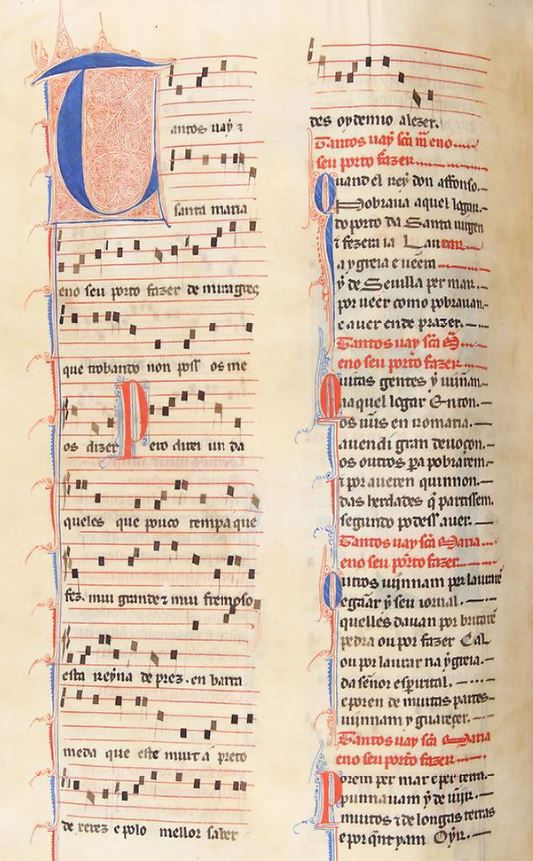 Tantos uay ⁊
santa maria
eno seu porto fazer de miragres
que trobando non poss' os me
os dizer Pero direi un da
queles que pouco tempa que
fez. mui grande ⁊ mui fremoso
esta reyna de prez. en barra
meda que este muit a preto
de xerez e polo mellor saber
des oydemio alezer.
Tantos uay sc̃a m̃ eno
seu porto fazer
Quand el rey don affonso.
Pobraua aquel logar.
do porto da Santa uirgen
⁊ fezera la Laurar
a ygreia e ueera
y de Seuilla per mar.
por ueer como pobrauan.
e auer ende prazer.
Tantos uay sc̃a M̃
eno seu porto fazer
Muitas gentes y uiian.
na aquel logar Enton.
os uũs en romaria.
auendi gran deuoçon.
os outros pa pobrarem.
⁊ por aueren quinnon.
das herdades q̃ partissem.
segundo podess' auer.
Tantos uay sc̃a Maria
eno seu porto fazer
Outros uiinnam per laurare
e gãar y seu iornal.
quelles dauan por britare
pedra ou por fazer Cal
ou por laurar na ygreia.
da sẽnor espirital.
e poren de muitas partes
uiinnam y guareçer.
Tantos uay sc̃a Maria
eno seu porto fazer
Porem per mar e per terra.
punnauam y de uĩjr.
muitos ⁊ de longas terras
e por q̃nt yam Oyir.